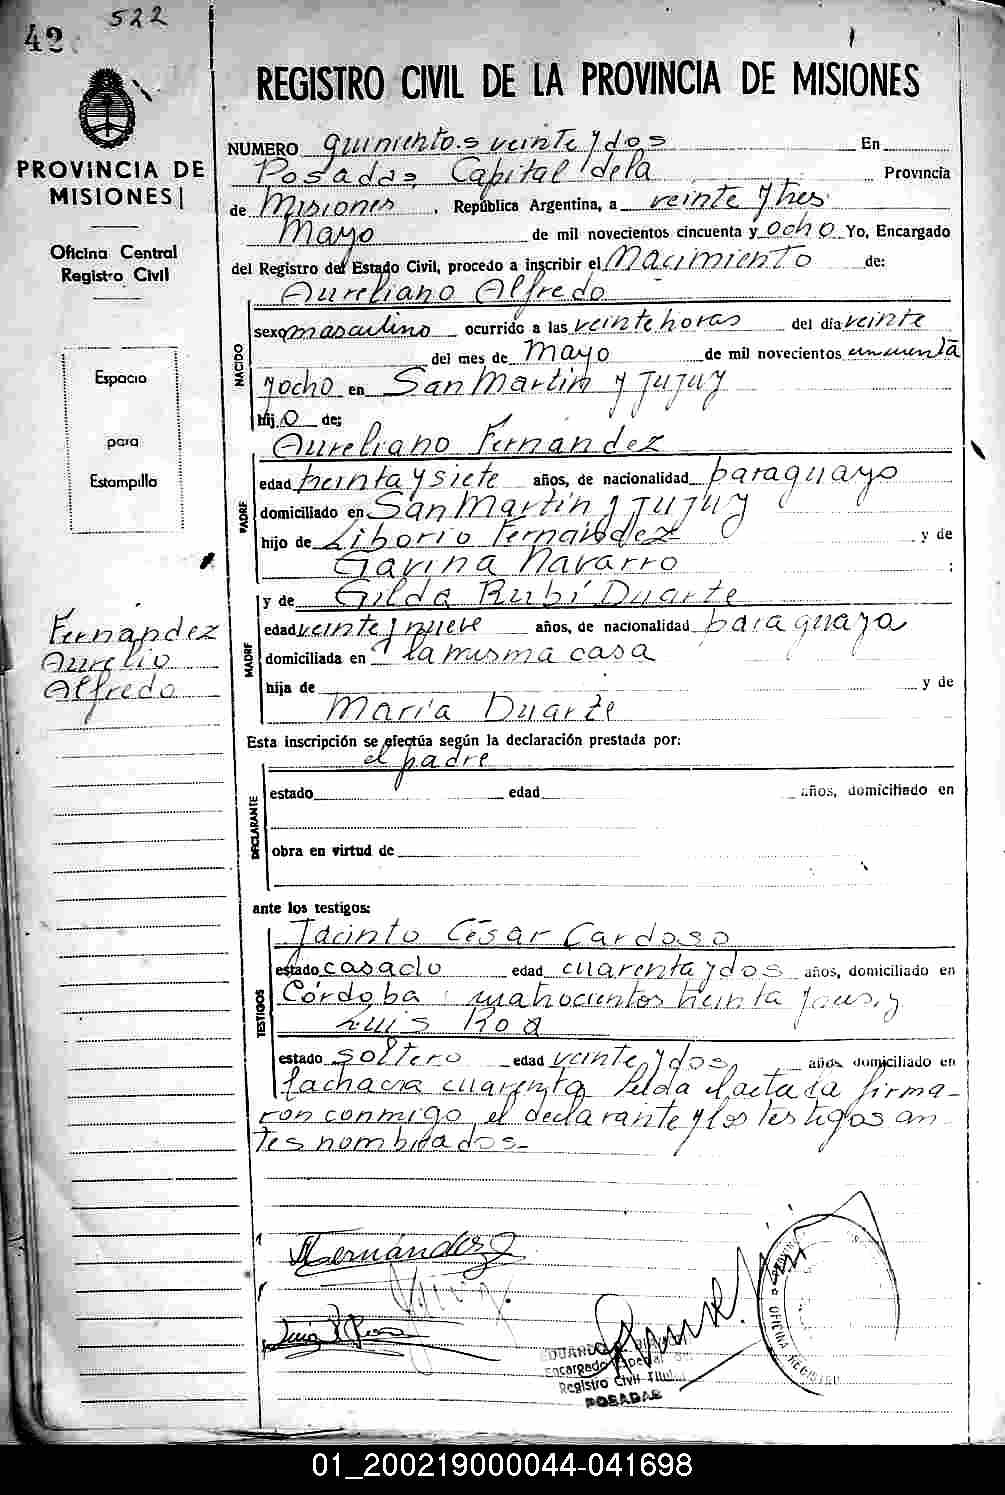 522
42
REGISTRO CIVIL DE LA PROVINCIA DE MISIONES
PROVINCIA DE
MISIONES
Oficina Central
Registro Civil
Espacio
para
Estampilla
Fernández
Aurelio
Alfredo
NUMERO quinientos veinte y dos En
Posadas, Capital de la Provincia
de Misiones, República Argentina, a veinte y tres
Mayo de mil novecientos cincuenta y ocho Yo, Encargado
del Registro del Estado Civil, procedo a inscribir el Nacimiento de:
Aureliano Alfredo
NACIDO
sexo masculino ocurrido a las veinte horas del día veinte
del mes de Mayo de mil novecientos cincuenta
y ocho en San Martín y Jujuy
hijo de:
Aureliano Fernández
PADRE
edad treinta y siete años, de nacionalidad paraguayo
domiciliado en San Martín y Jujuy
hijo de Liborio Fernández y de
Gavina Navarro ;
y de Gilda Rubí Duarte
MADRE
edad veinte y nueve años, de nacionalidad paraguaya
domiciliada en la misma casa
hija de y de
María Duarte
Esta inscripción se efectúa según la declaración prestada por:
el padre
DECLARANTE
estado edad años, domiciliado en
obra en virtud de
ante los testigos:
Jacinto César Cardoso
TESTIGOS
estado casado edad cuarenta y dos años, domiciliado en
Córdoba treinta y
Luis Roa
estado soltero edad veinte y dos años domiciliado en
cuarenta Leída el acta la firma-
ron conmigo, el declarante y los testigos an-
tes nombrados.-
Fernández
Encargado Especial
Registro Civil
POSADAS
OFICINA REGISTRO
01_200219000044-041698